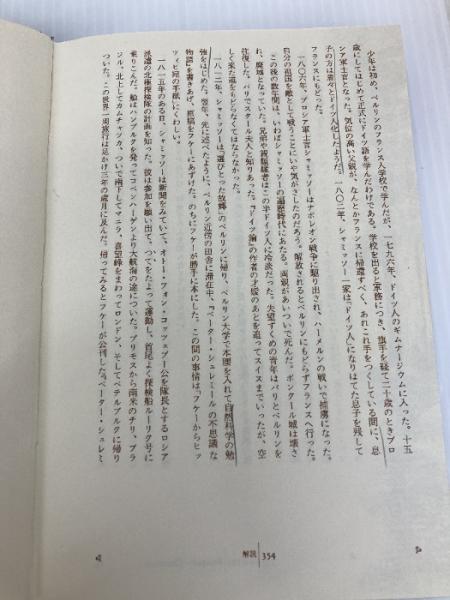 少年は初め、ベルリンのフランス人学校で学んだが、一七九六年、ドイツ人のギムナージウムに入った。十五
歳にしてはじめて正式にドイツ語を学んだわけである。学校を出ると軍務につき、旗手を経て二十歳のときプロ
シア軍士官となった。気位の高い父親が、なんとかフランスに帰還すべく、あれこれ手をつくしている間に、息
子の方は着々とドイツ人化したようだ。一八〇二年、シャミッソー一家は「ドイツ人」になりはてた息子を残して
フランスにもどった。
一八〇六年、プロシア軍士官シャミッソーはナポレオン戦争に駆り出され、ハーメルンの戦いで捕虜になった。
自分の祖国を敵として戦うことにいや気がさしたのだろう。解放されるとベルリンにもどらずフランスへ行った。
この後の数年間は、いわばシャミッソーの遍歴時代にあたる。両親があいついで死んだ。ボンクール城は壊さ
れ、廃墟となっていた。兄弟や親類縁者はこの半ドイツ人に冷淡だった。失望ずくめの青年はパリとベルリンを
往復した。パリでスタール夫人と知りあった。『ドイツ論』の作者の才媛のあとを追ってスイスまでいったが、空
しく来た道をもどらなくてはならなかった。
一八一二年、シャミッソーは「選びとった故郷」のベルリンに帰り、ベルリン大学で本腰を入れて自然科学の勉
強をはじめた。翌年、先に述べたように、ベルリン近傍の田舎に滞在中、『ペーター・シュレミールの不思議な
物語』を書きあげ、原稿をフケーにあずけた。のちにフケーが勝手に本にした。この間の事情は「フケーからヒッ
ツィヒ宛の手紙」にくわしい。
一八一五年のある日、シャミッソーは新聞をみていて、オトー・フォン・コッツェブー公を隊長とするロシア
派遣の北極探検隊の計画を知った。彼は参加を願い出て、つてをたよって運動し、首尾よく探検船ルーリク号に
乗りこんだ。船はハンブルクを発ってコペンハーゲンより大航海の途についた。プリモスから南米のチリ、ブラ
ジル、北上してカムチャツカ、ついで南下してマニラ、喜望峰をまわってロンドン、そしてペテルブルクに帰り
ついた。この世界一周旅行は足かけ三年の歳月に及んだ。帰ってみるとフケーが公刊した『ペーター・シュレミ
解説 354